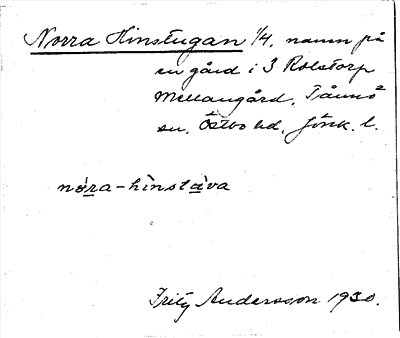 Norra Hinstugan 1/4, namn på
en gård i 3 Rolstorp
Mellangård, Tånnö
sn, Östbo hd, Jönk. l.
nóra-hìnstàva
Fritz Andersson 1930.